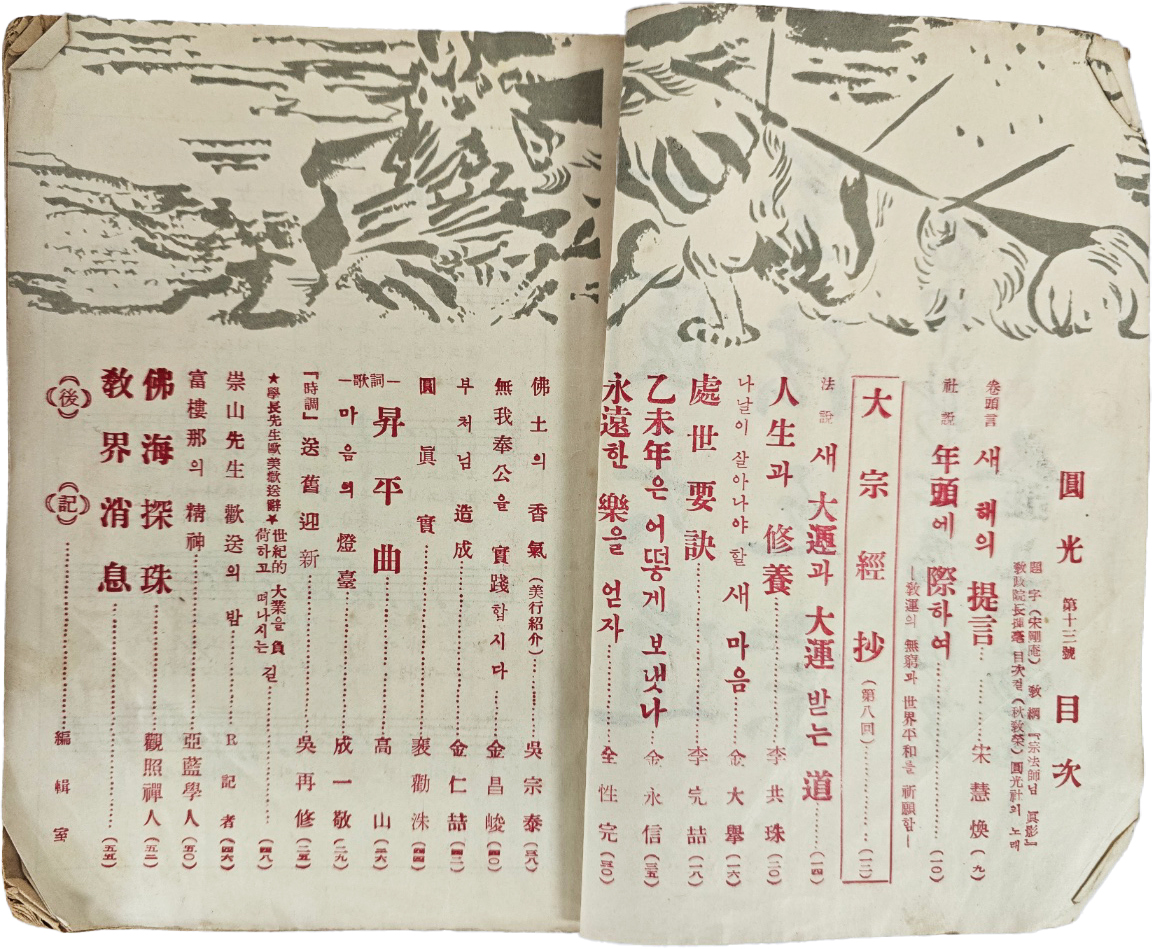 圓光 第十三號 目次
題字(宋剛庵) 敎綱『宗法師님 眞影』
敎政院長揮毫 目次컽(秋敎榮) 圓光社의 노래
卷頭言 새 해의 提言 宋慧煥 (九)
社說 年頭에 際하여 (一〇)
—敎運의 無窮과 世界平和를 祈願함—
大宗經抄 (第八回) (一二)
法說 새 大運과 大運 받는 道 (一四)
人生과 修養 李共珠 (二〇)
나날이 잘아나야 할 새 마음 金大擧 (一六)
處世要訣 李完喆 (一八)
乙未年은 어떻게 보냇나 金永信 (三五)
永遠한 樂을 얻자 全性完 (三〇)
佛土의 香氣 (美行紹介) 吳宗泰 (三八)
無我奉公을 實踐합시다 金昌峻 (四〇)
부처님 造成 金仁喆 (四二)
圓眞實 裵勸洙 (四四)
—歌詞— 昇平曲 高山 (三六)
—마음의 燈臺 成一敬 (二九)
『時調』 送舊迎新 吳再修 (二五)
★學長先生歐美歡送辭★ 世紀的 大業을 負荷하고 떠나시는 길 (四八)
崇山先生 歡送의 밤 R記者 (四六)
富樓那의 精神 亞藍學人 (五〇)
佛海探珠 觀照禪人 (五二)
敎界消息 (五五)
(後)(記) 編輯室